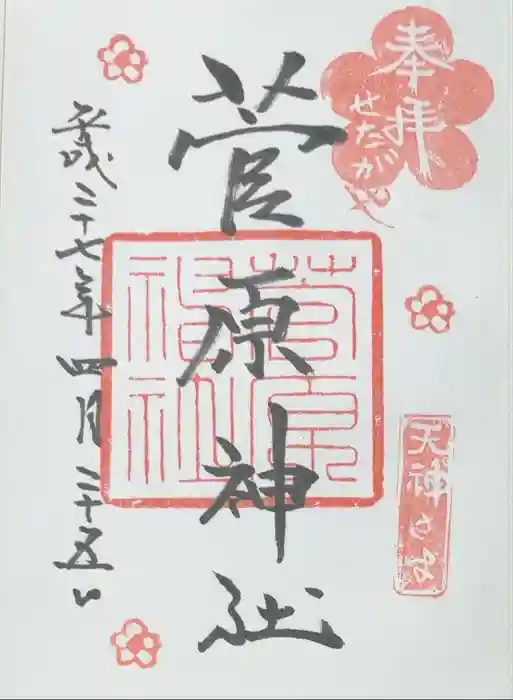 奉拝
せたがや
天神さま
菅原神社
菅原神社
平成二十七年四月二十五日